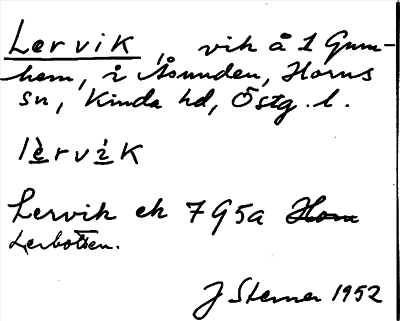 Lervik, vik å 1 Gum-
hem, i Åsunden, Horns
sn, Kinda hd, Östg. l.
lèrvìk
Lervik ek 7 G5a Horn
Lerbotten.
J Sterner 1952